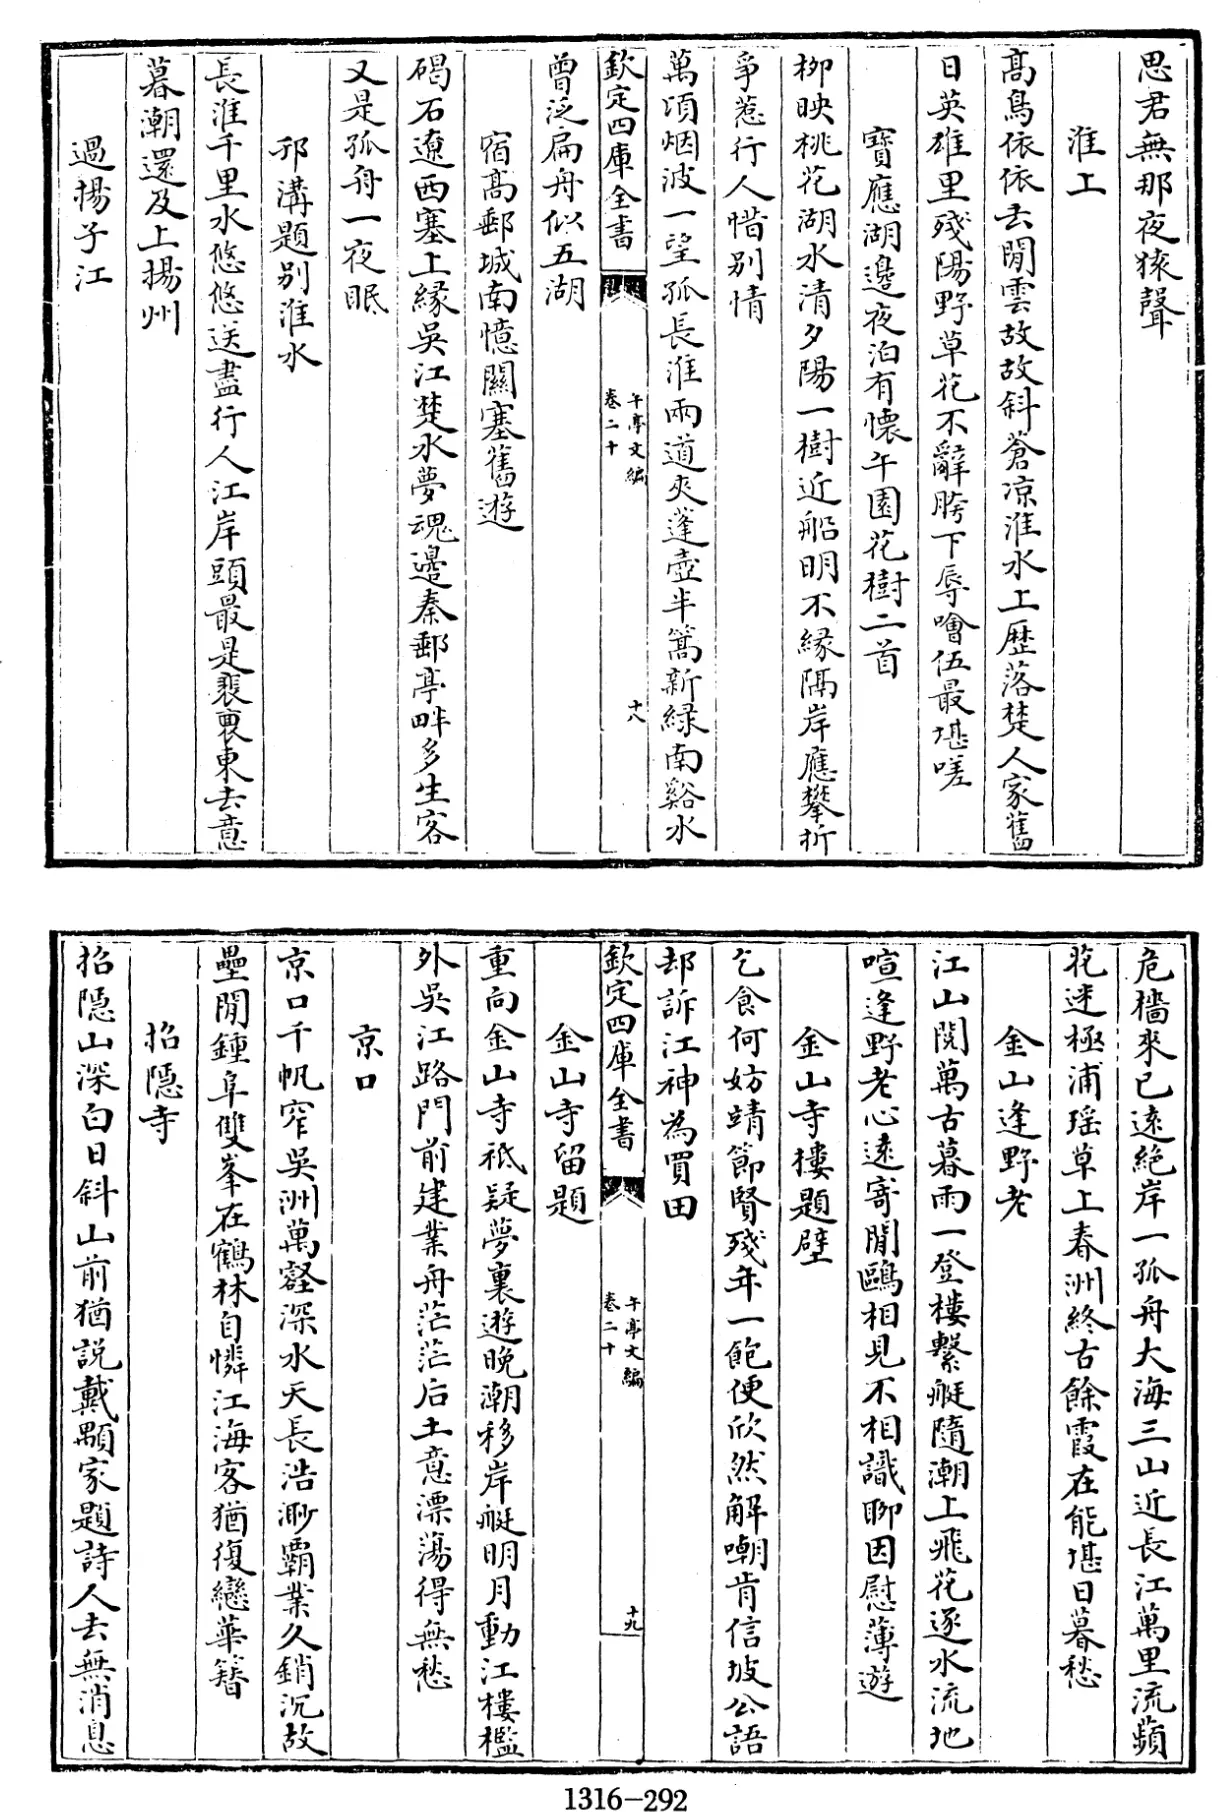 思君無那夜猿聲
淮上
高鳥依依去閒雲故故斜蒼凉淮水上歴落楚人家舊
日英雄里殘陽野草花不辭胯下辱噲伍最堪嗟
寶應湖邊夜泊有懷午園花樹二首
栁映桃花湖水清夕陽一樹近船明不縁隔岸應攀折
爭惹行人惜别情
萬頃烟波一望孤長淮兩道夾蓬壺半篙新緑南谿水
欽定四庫全書
午亭文編
卷二十
十八
曾泛扁舟似五湖
宿高郵城南憶關塞舊遊
碣石遼西塞上縁吳江楚水夢魂邊秦郵亭畔多生客
又是孤舟一夜眠
邗溝題别淮水
長淮千里水悠悠送盡行人江岸頭最是裴裒東去意
暮潮還及上揚州
過揚子江
危檣來已遠絶岸一孤舟大海三山近長江萬里流蘋
花迷極浦瑶草上春洲終古餘霞在能堪日暮愁
金山逢野老
江山閲萬古暮雨一登樓繫艇隨潮上飛花逐水流地
喧逢野老心遠寄閒鷗相見不相識聊因慰薄遊
金山寺樓題壁
乞食何妨靖節賢殘年一飽便欣然解嘲肯信坡公語
却訴江神為買田
欽定四庫全書
午亭文編
卷二十
十九
金山寺留題
重向金山寺祇疑夢裏遊晚潮移岸艇明月動江樓檻
外吳江路門前建業舟茫茫后土意漂蕩得無愁
京口
京口千帆窄吳洲萬壑深水天長浩渺霸業久銷沉故
壘閒鍾阜雙峯在鶴林自憐江海客猶復戀華簪
招隱寺
招隱山深白日斜山前猶説戴顒家題詩人去無消息
1316-292